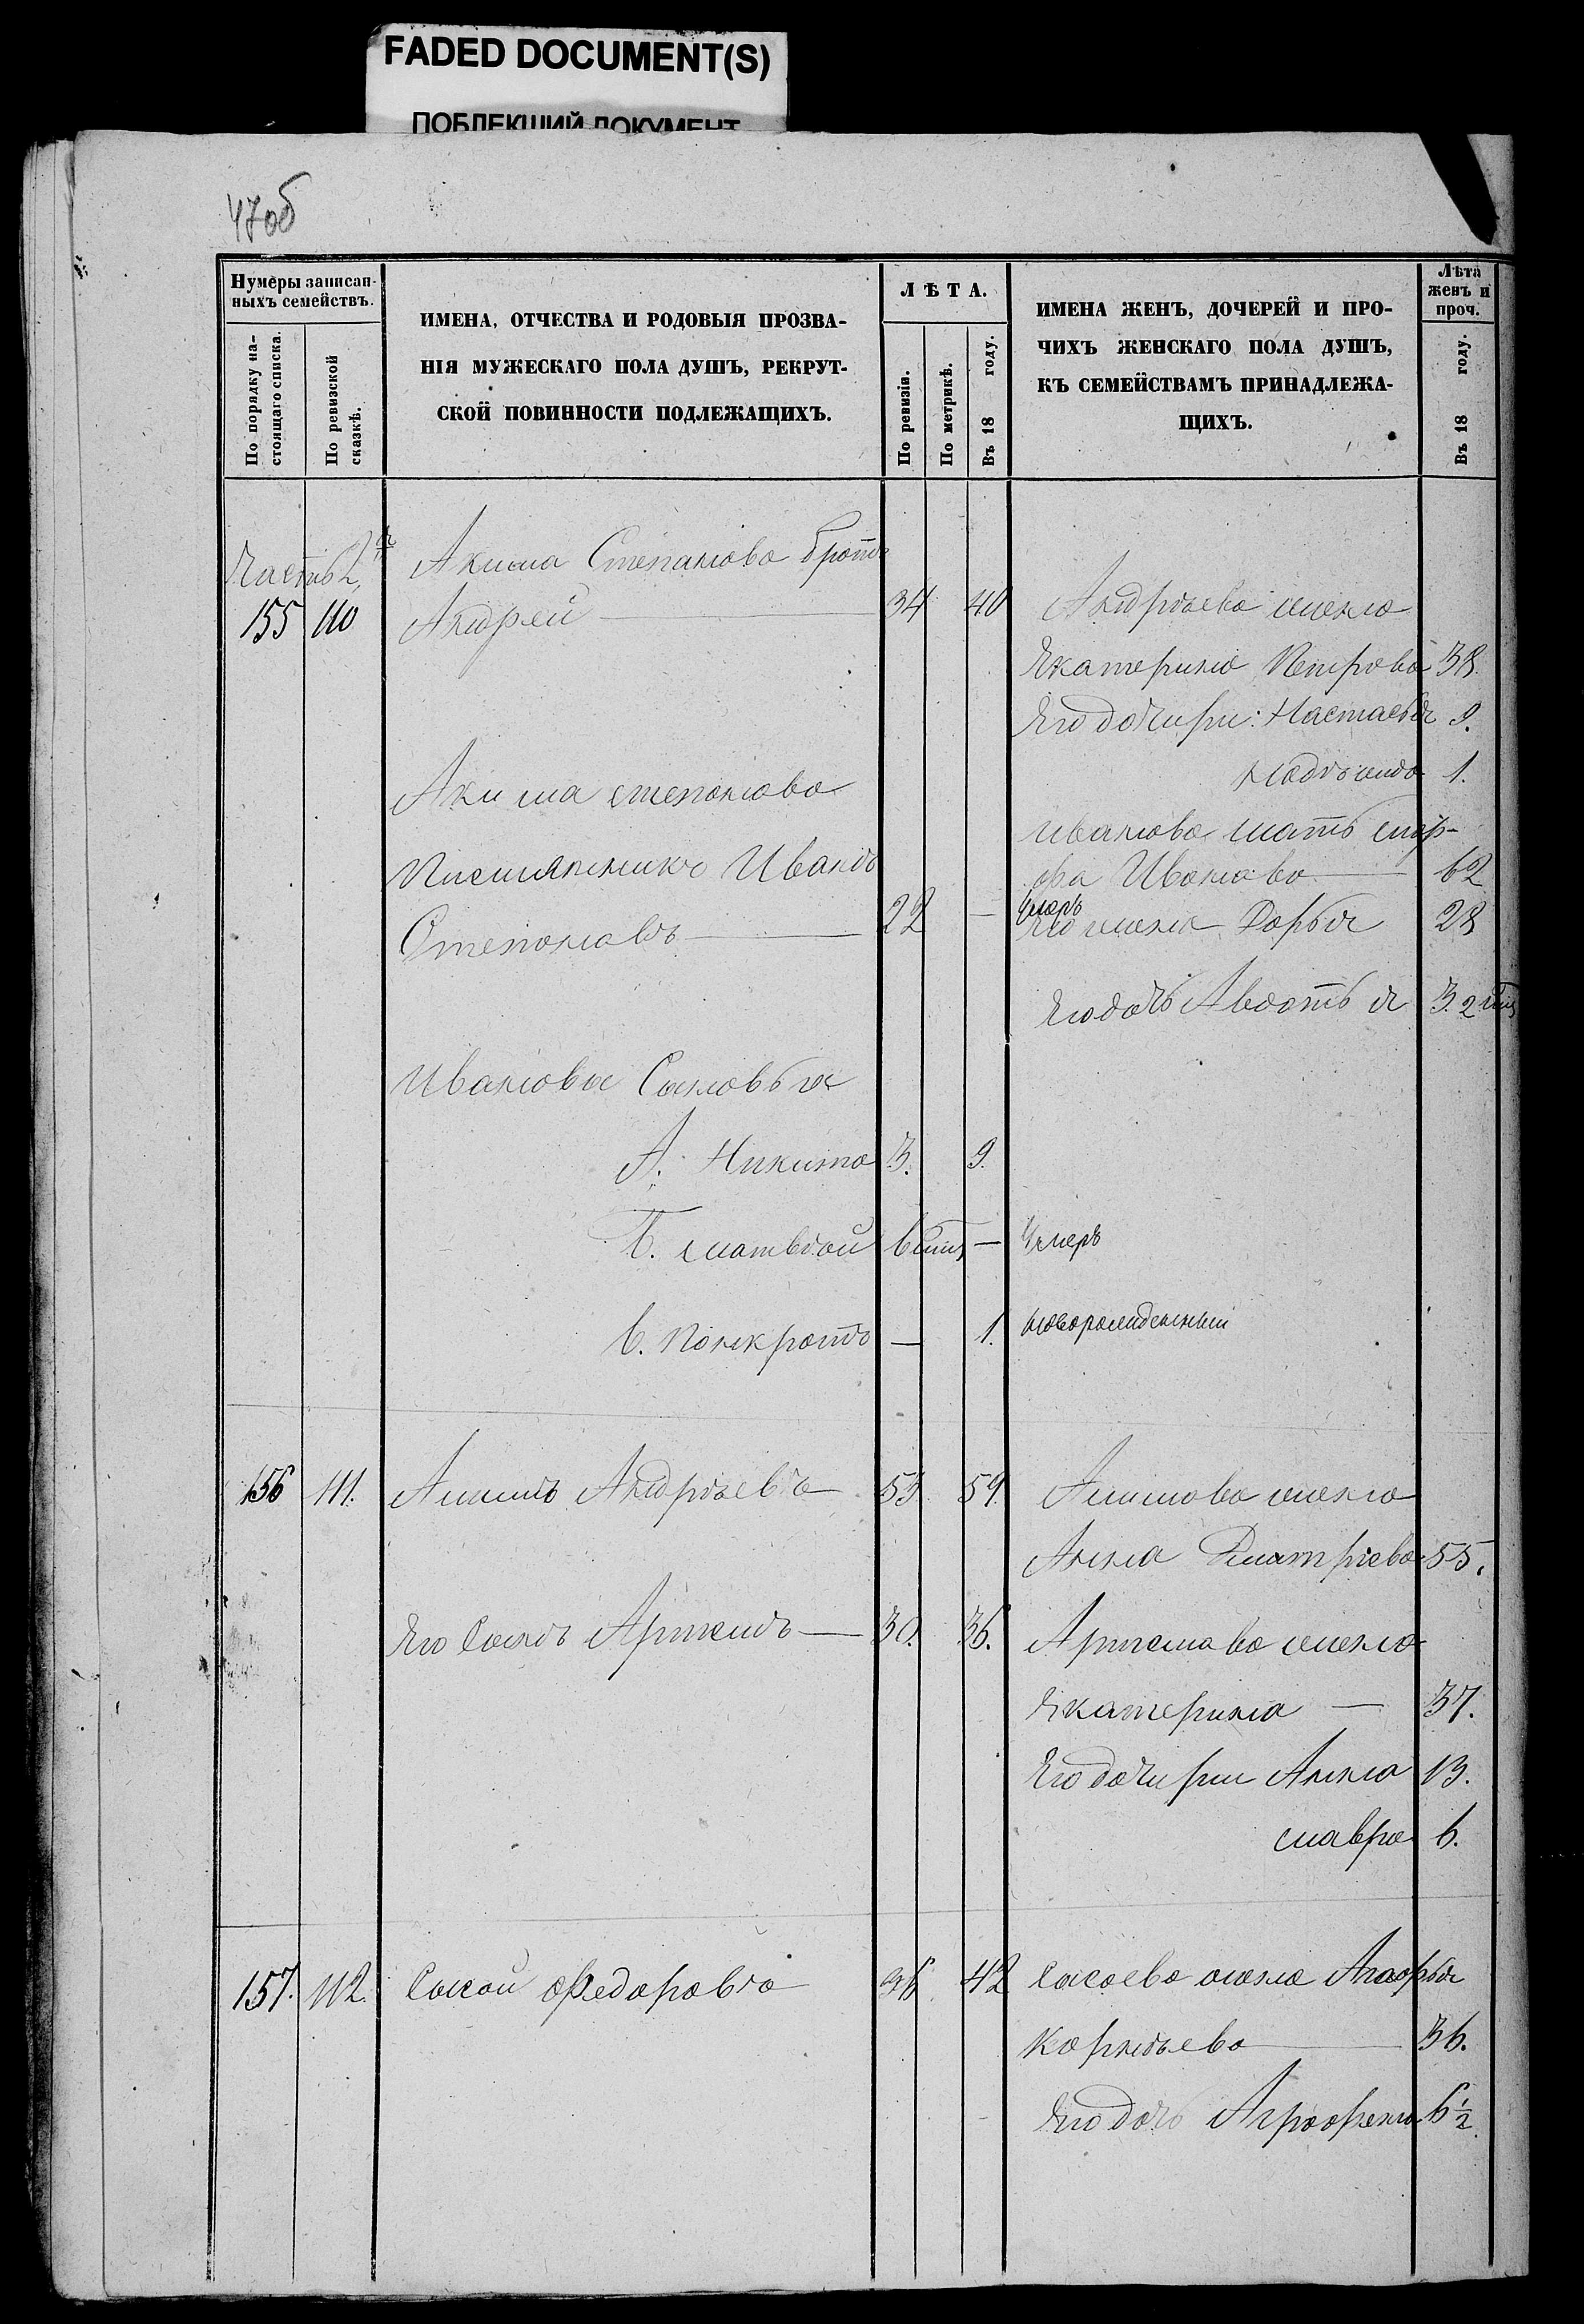 FADED DOCUMENT(S)
ПОБЛЕКШИЙ ДОКУМЕНТ
47об
Нумеры записан-
ныхъ семействъ.
По порядку на-
стоящаго списка.
По ревизской
сказкѣ.
ИМЕНА, ОТЧЕСТВА И РОДОВЫЯ ПРОЗВА-
НІЯ МУЖЕСКАГО ПОЛА ДУШЪ, РЕКРУТ-
СКОЙ ПОВИННОСТИ ПОДЛЕЖАЩИХЪ.
ЛѢТА.
По ревизіи.
По метрикѣ.
Въ 18 году.
ИМЕНА ЖЕНЪ, ДОЧЕРЕЙ И ПРО-
ЧИХЪ ЖЕНСКАГО ПОЛА ДУШЪ,
КЪ СЕМЕЙСТВАМЪ ПРИНАДЛЕЖА-
ЩИХЪ.
Лѣта
женъ и
проч.
Въ 18 году.
Часть 2я
Акима Степанова братъ
155 110 Андрей — 34 40 Андрѣева жена
Екатерина Петрова 38.
Его дочири: Настасья 9.
Надѣжда 1.
Акима степанова
Иванова мать
Племянникъ Иванъ
Иванова — 62
Степановъ — 22 — Умеръ
Его жена Дарья 28
Его дочь Авдотья 3. 2 мц
Ивановы Сыновья
А. Никита 3. 9.
Б. матвѣй 6 мц — Умеръ
В. Панкратъ — 1. новорожденный
156 111. Акимъ Андрѣевъ 53 59. Акимова жена
Анна Дматріева 55.
Его Сынъ Артемъ — 30. 36. Артемова жена
Екатерина — 37.
Его дочири Анна 13.
мавра 6.
157. 112. Сысой Федоровъ 36 42 Сысоева жена Агафья
Карнѣева — 36.
Его дочь Аграфена 6½.